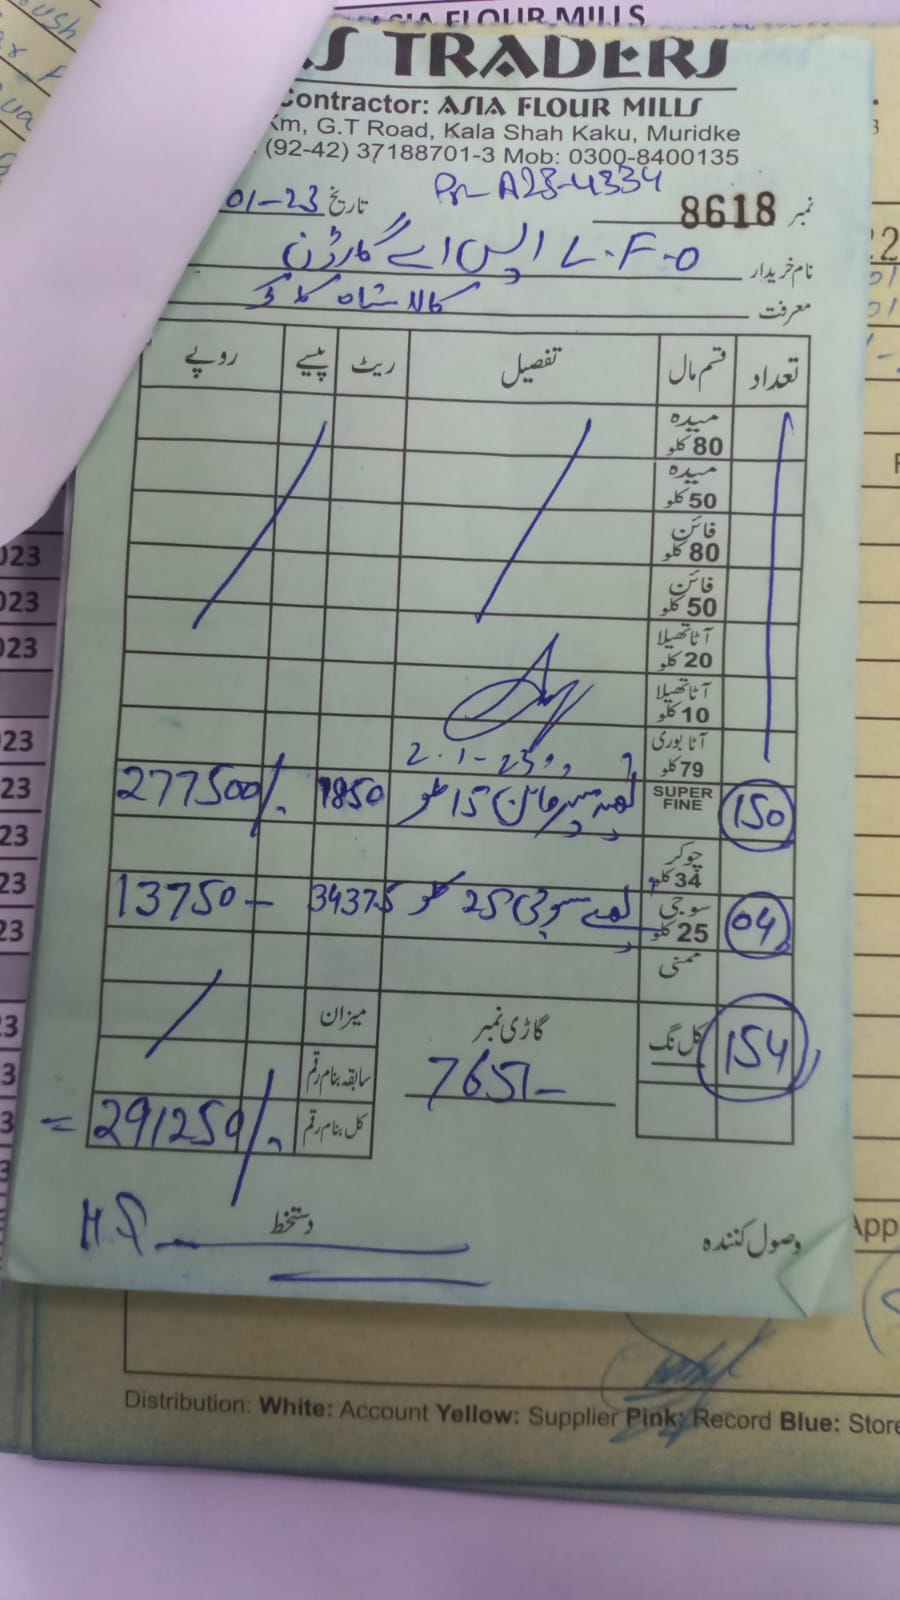 ASIA FLOUR MILLS
S TRADERS
Contractor: ASIA FLOUR MILLS
Km, G.T Road, Kala Shah Kaku, Muridke
(92-42) 37188701-3 Mob: 0300-8400135
A23-4334
نمبر 8618 تاریخ 01-23
نام خریدار L.F.O ایس اے گارڈن
معرفت کالا شاہ کاکو
تعداد قسم مال تفصیل ریٹ پیسے روپے
میدہ
80 کلو
میدہ
50 کلو
فائن
80 کلو
فائن
50 کلو
آٹا تھیلا
20 کلو
آٹا تھیلا
10 کلو
آٹا بوری
79 کلو
2.1-23
150 SUPER FINE 15 کلو 1850 277500/.
چوکر
34 کلو
04 سوجی 25 کلو سوجی 25 کلو 3437.5 13750-
ممنی
154 کل نگ گاڑی نمبر میزان
7651- سابقہ بنام رقم
کل بنام رقم 291250/. =
وصول کنندہ دستخط
023
023
023
023
23
23
23
23
23
3
3
App
Distribution: White: Account Yellow: Supplier Pink: Record Blue: Store